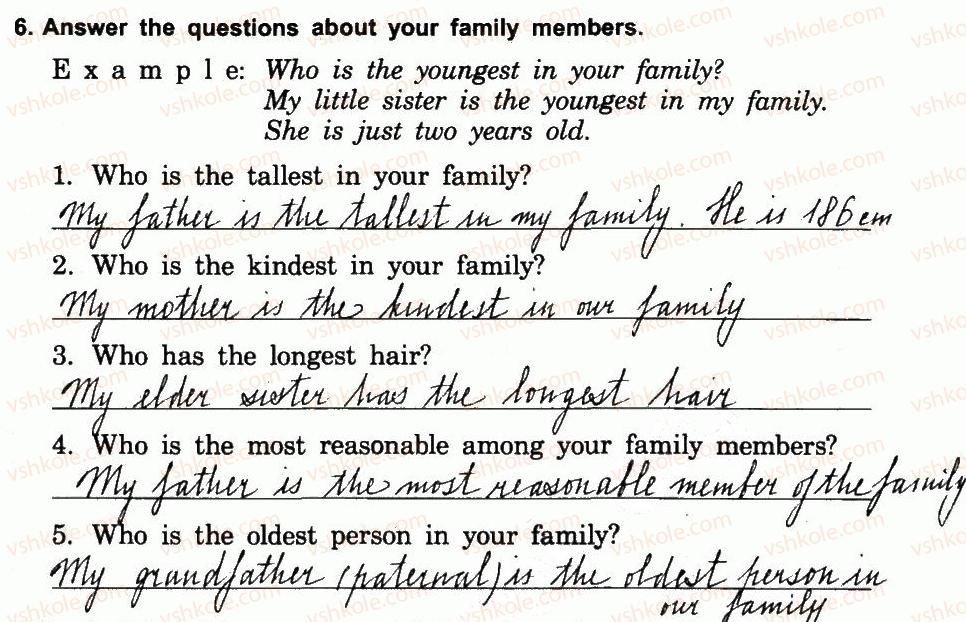 6. Answer the questions about your family members.
E x a m p l e: Who is the youngest in your family?
My little sister is the youngest in my family.
She is just two years old.
1. Who is the tallest in your family?
My father is the tallest in my family. He is 186 cm
2. Who is the kindest in your family?
My mother is the kindest in our family
3. Who has the longest hair?
My elder sister has the longest hair
4. Who is the most reasonable among your family members?
My father is the most reasonable member of the family
5. Who is the oldest person in your family?
My grandfather (paternal) is the oldest person in
our family
vshkole.com